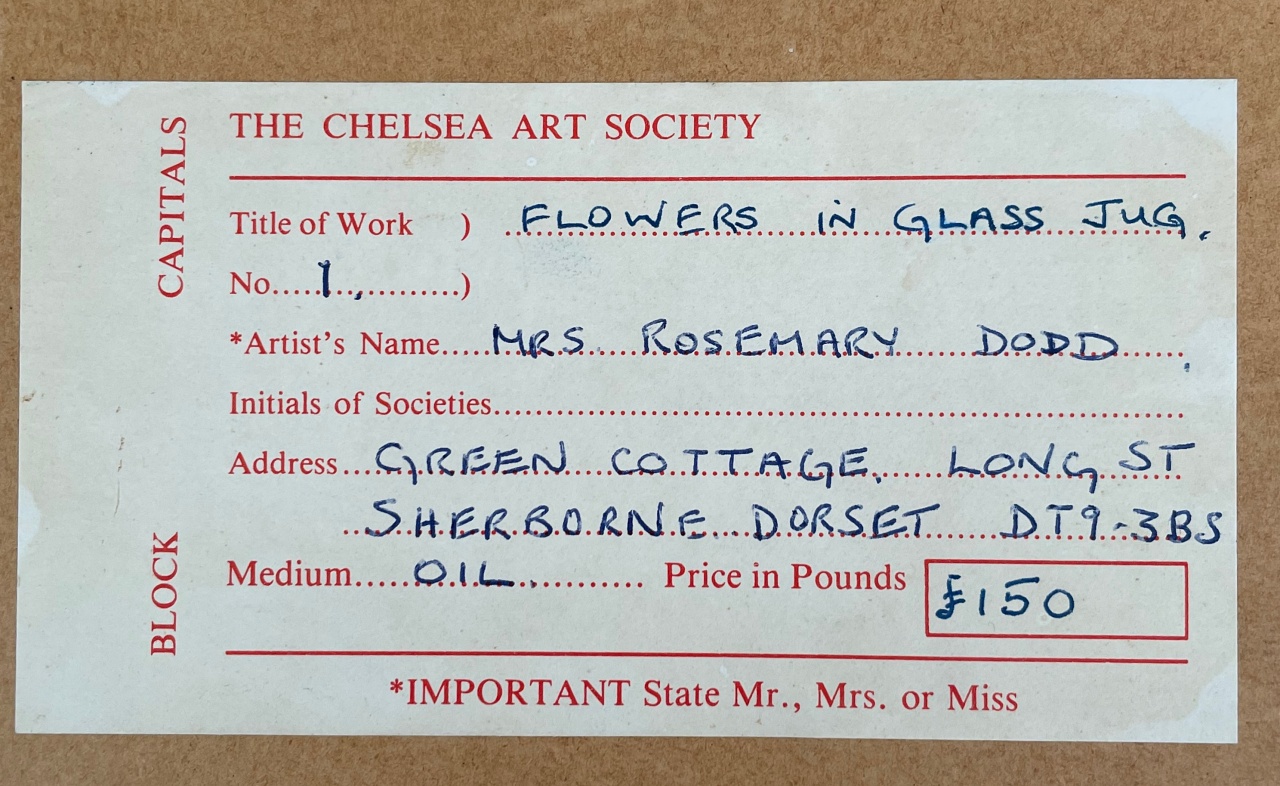 BLOCK CAPITALS
THE CHELSEA ART SOCIETY
Title of Work ) FLOWERS IN GLASS JUG.
No.....1.,..........)
*Artist's Name....MRS. ROSEMARY DODD.
Initials of Societies
Address...GREEN COTTAGE. LONG ST
SHERBORNE DORSET DT9-3BS
Medium.....OIL........... Price in Pounds £150
*IMPORTANT State Mr., Mrs. or Miss